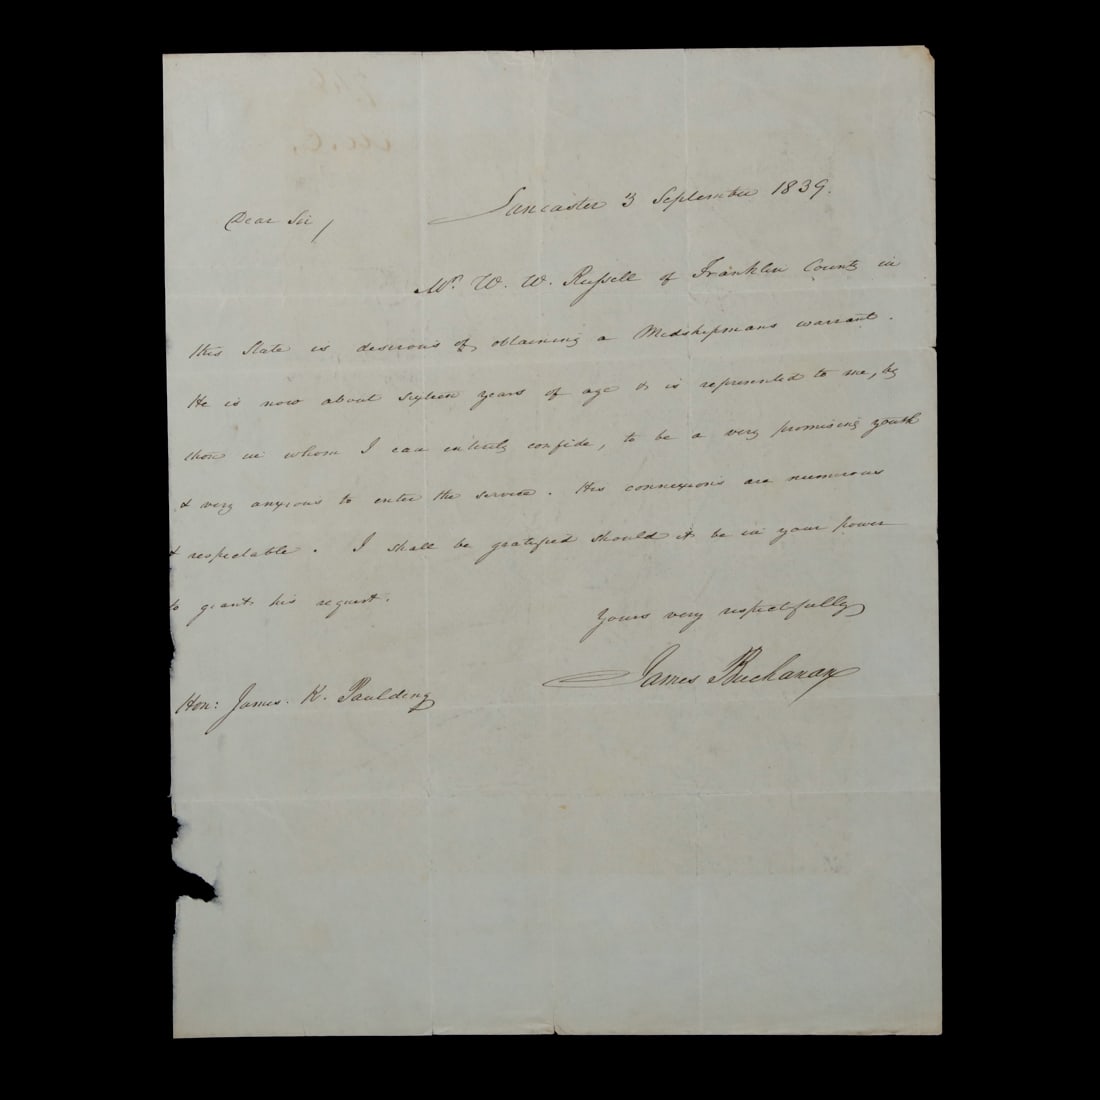 Lancaster 3 September 1839.
Dear Sir,
Mr. W. W. Russell of Franklin County in
this State is desirous of obtaining a Midshipmans warrant.
He is now about sixteen years of age & is represented to me, by
those in whom I can entirely confide, to be a very promising youth
& very anxious to enter the service. His connexions are numerous
& respectable. I shall be gratified should it be in your power
to grant his request.
Yours very respectfully
James Buchanan
Hon: James. K. Paulding